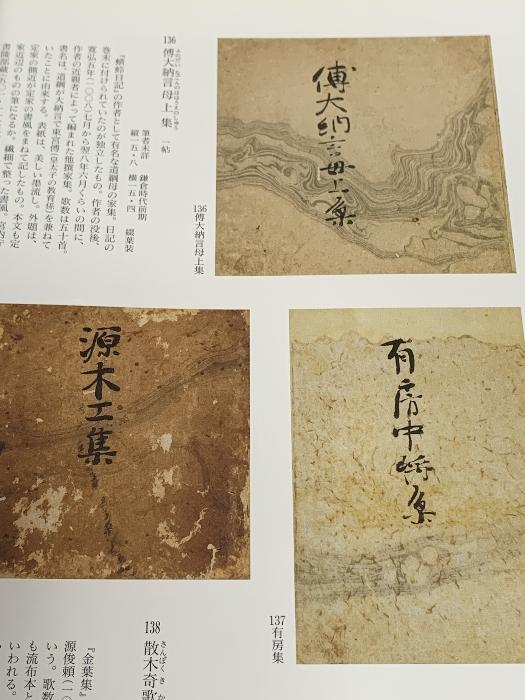 136
傅大納言母上集 一帖
筆者未詳 鎌倉時代前期 綴葉装
縦一五・八 横一五・四
『蜻蛉日記』の作者として有名な道綱母の家集。日記の
巻末に付けられていたのが独立したもの。作者の没後、
寛弘五年(一〇〇八)七月から翌八年六月くらいの間に、
作者の近親者によって編まれた他撰家集。歌数は五十首。
書名は、道綱が大納言で東宮傅(皇太子の教育係)を兼ねて
いたことに由来する。表紙は、美しい墨流し。外題は、
定家の側近が定家の書風をまねて記したもの。本文も定
家近辺のものの筆になるか、繊細で整った書風。宮内庁
136傅大納言母上集
傅大納言母上集
源木工集
有房中将集
137有房集
138
散木奇歌
さんぼくきか
『金葉集』
源俊頼(一〇
いう。歌数
も流布本と
いわれる。